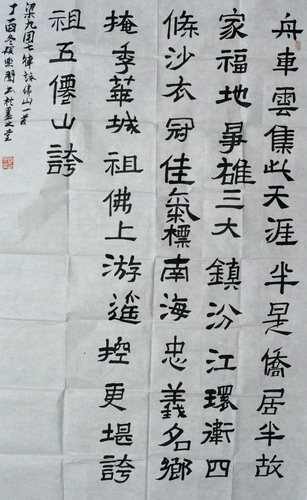 舟車雲集此天涯半是僑居半故
家福地爭雄三大鎮汾江環衛四
條沙衣冠佳氣標南海忠義名鄉
掩季華城祖佛上游遥控更堪誇
祖五僊山誇
梁九圖七律詠佛山一首
丁酉冬